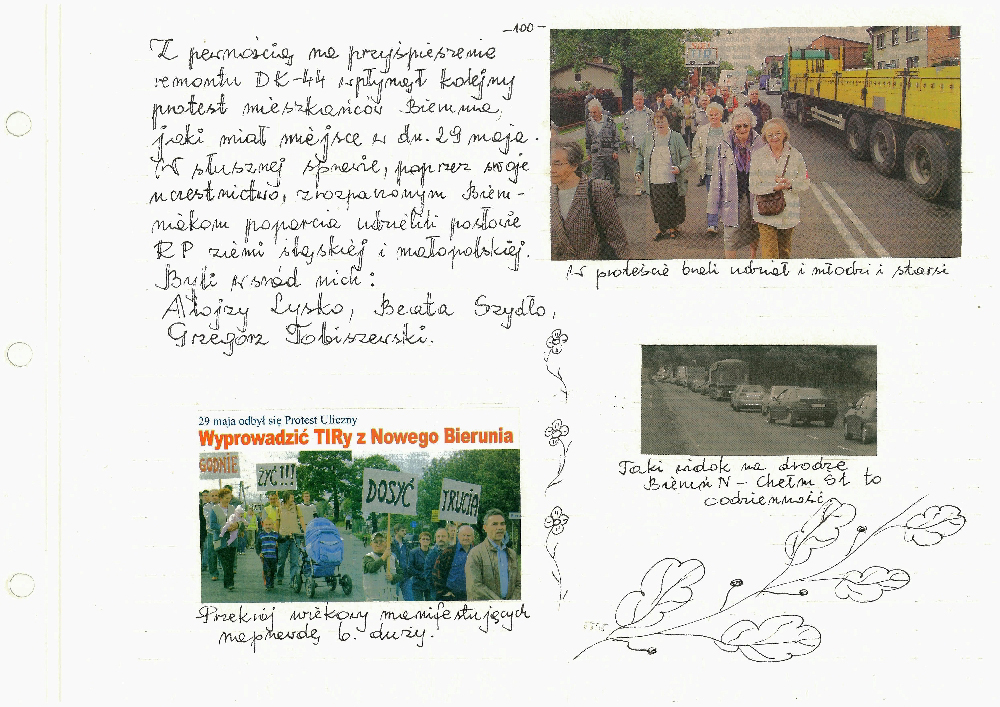 -100-
Z pewnością na przyśpieszenie
remontu DK-44 wpłynął kolejny
protest mieszkańców Bierunia,
jaki miał miejsce w dn. 29 maja.
W słusznej sprawie, poprzez swoje
uczestnictwo, zrozpaczonym Bieru-
niakom poparcia udzielili posłowie
RP ziemi śląskiej i małopolskiej.
Byli wśród nich:
Alojzy Lysko, Beata Szydło,
Grzegorz Tobiszewski.
W proteście brali udział i młodzi i starsi
29 maja odbył się Protest Uliczny
Wyprowadzić TIRy z Nowego Bierunia
GODNIE
ŻYĆ!!!
DOSYĆ
TRUCIA
Przekrój wiekowy manifestujących
naprawdę b. duży.
Taki widok na drodze
Bieruń N - Chełm Śl to
codzienność